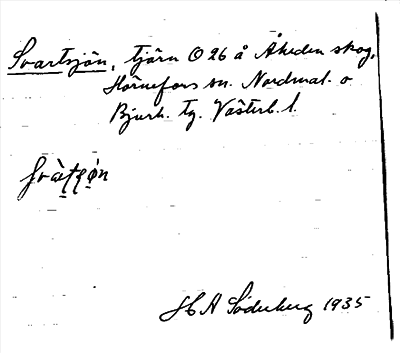 Svartsjön, tjärn O 26 å Åheden skog,
Hörnefors sn. Nordmal. o
Bjurh. tg. Västerb. l.
H A Söderberg 1935